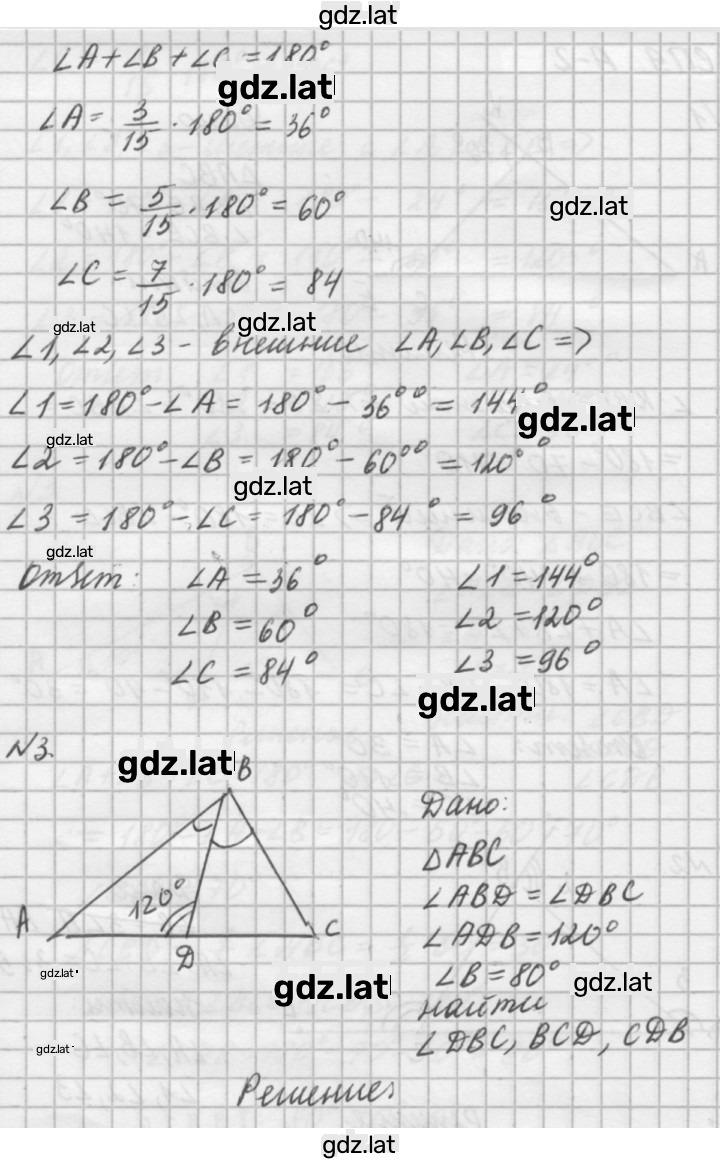 gdz.lat
∠A+∠B+∠C =180°
gdz.lat
∠A= 3/15 · 180° = 36°
∠B = 5/15 · 180° = 60°
gdz.lat
∠C = 7/15 · 180° = 84
gdz.lat
gdz.lat
∠1, ∠2, ∠3 - внешние ∠A, ∠B, ∠C =>
∠1 = 180° - ∠A = 180° - 36°° = 144°
gdz.lat
gdz.lat
∠2 = 180° - ∠B = 180° - 60°° = 120°°
gdz.lat
∠3 = 180° - ∠C = 180° - 84° = 96°
gdz.lat
Ответ: ∠A = 36° ∠1 = 144°
∠B = 60° ∠2 = 120°
∠C = 84° ∠3 = 96°
gdz.lat
N3.
gdz.lat
B
Дано:
△ABC
∠ABD = ∠DBC
120°
A
C
∠ADB = 120°
D
∠B = 80°
gdz.lat
gdz.lat
gdz.lat
найти
∠DBC, BCD, CDB
gdz.lat
Решение:
gdz.lat